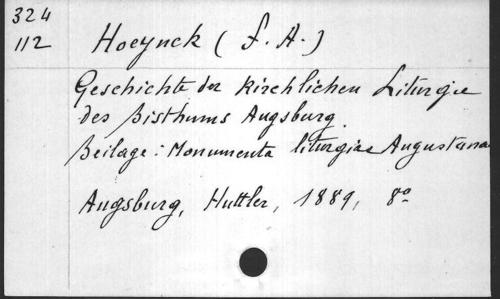 324
112
Hoeynck (F. A.)
Geschichte der kirchlichen Liturgie
des Bisthums Augsburg.
Beilage: Monumenta liturgiae Augustanae
Augsburg, Huttler, 1889, 8º